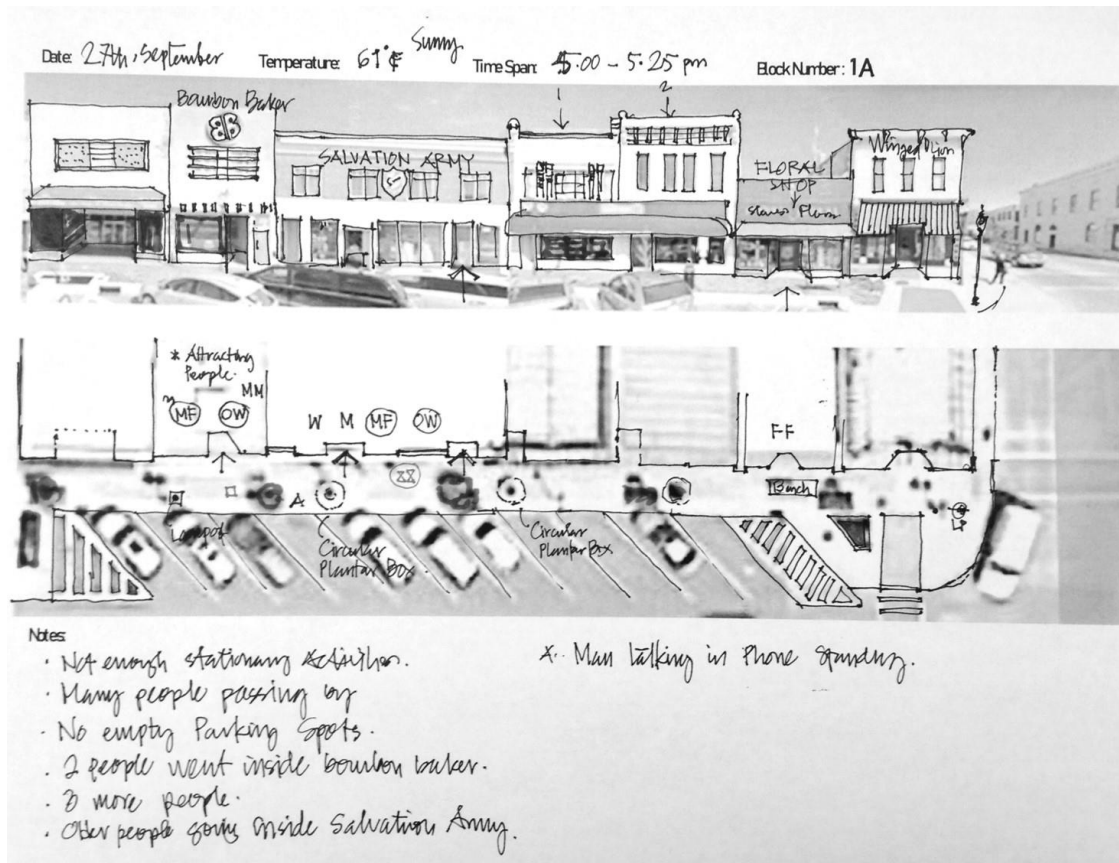 Date: 27th, September
Temperature: 61°F Sunny
Time Span: 5:00 - 5:25 pm
Block Number: 1A
Bourbon Baker
BB
SALVATION ARMY
1
2
FLORAL
SHOP
Winged Lion
* Attracting
People.
MM
MF OW
W M MF OW
FF
A
Bench
LP
Lampost
Circular
Plantar Box
Circular
Plantar Box
Notes:
· Not enough stationary activities.
· Many people passing by
· No empty Parking Spots.
· 2 people went inside bourbon baker.
· 3 more people.
· Other people going inside Salvation Army.
Man talking in Phone standing.